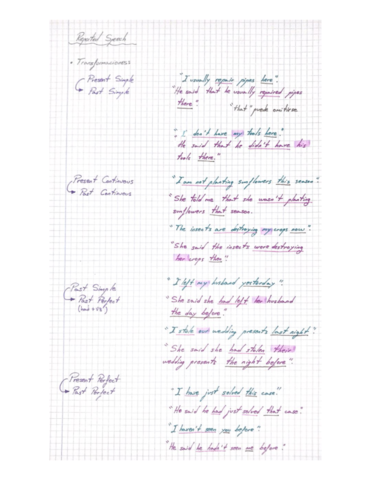 Reported Speech
• Transformaciones
Present Simple
Past Simple
"I usually repair pipes here."
"He said that he usually repaired pipes
there".
"that" puede omitirse
"I don't have my tools here."
He said that he didn't have his
tools there."
Present Continuous
Past Continuous
"I am not planting sunflowers this season".
"She told me that she wasn't planting
sunflowers that season.
"The insects are destroying my crops now".
"She said the insects were destroying
her crops then"
Past Simple
Past Perfect
"I left my husband yesterday".
"She said she had left her husband
the day before."
"I stole our wedding presents last night".
"She said she had stolen their
wedding presents the night before".
Present Perfect
Past Perfect
"I have just solved this case."
"He said he had just solved that case."
"I haven't seen you before".
"He said he hadn't seen me before".